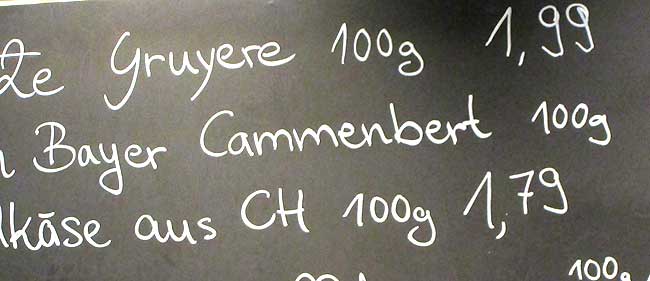 Le Gruyere 100g 1,99
Bayer Cammenbert 100g
lkäse aus CH 100g 1,79
100g